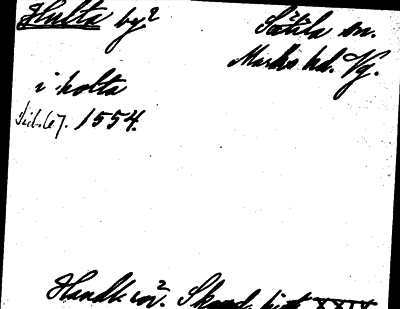 Hulta by² Sätila sn.
Marks hd. Vg.
i holta
1554.
Handl. rör. Skand. hist. XXIX